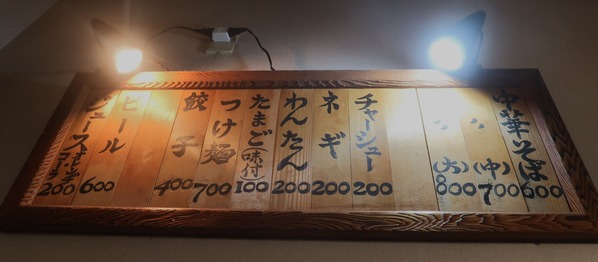 中華そば 600
〃 (中) 700
〃 (大) 800
チャーシュー 200
ネギ 200
わんたん 200
たまご(味付) 100
つけ麺 700
餃子 400
ビール 600
ジュース 200